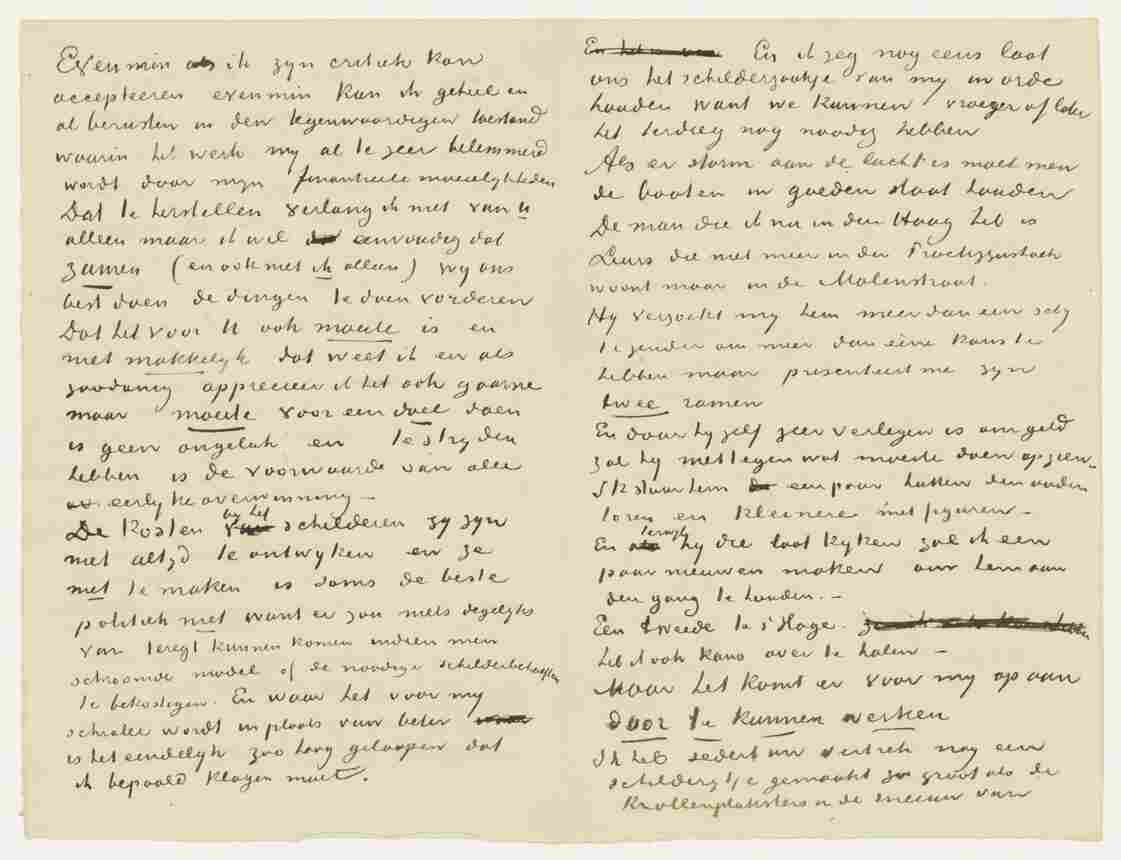 Evenmin als ik zyn critiek kan
accepteeren evenmin kan ik geheel en
al berusten in den tegenwoordigen toestand
waarin het werk my al te zeer belemmerd
wordt door mijn financieele moeielykheden
Dat te herstellen verlang ik niet van U
alleen maar ik wil eenvoudig dat
zamen (en ook niet ik alleen) wy ons
best doen de dingen te doen vorderen
Dat het voor U ook moeite is en
niet makkelyk dat weet ik en als
zoodanig apprecieer ik het ook gaarne
maar moeite voor een doel doen
is geen ongeluk en te stryden
hebben is de voorwaarde van alle
eerlyke overwinning –
De kosten by het schilderen zy zyn
niet altyd te ontwyken en ze
niet te maken is soms de beste
politiek niet want er zou niets degelyks
van teregt kunnen komen indien men
schroomde model of de noodige schilderbehoeften
te bekostigen. En waar het voor my
schraler wordt in plaats van beter
is het eindelyk zoo lang geloopen dat
ik bepaald klagen moet.
En het is van En ik zeg nog eens laat
ons het schilderzaakje van my in orde
houden want we kunnen vroeger of later
het terdieg nog noodig hebben
Als er storm aan de lucht is moet men
de booten in goeden staat houden
De man die ik nu in den Haag heb is
Leurs die niet meer in de Practizynshoek
woont maar in de Molenstraat.
Hy verzoekt my hem meer dan een schy
te zenden om meer dan eene kans te
hebben maar presenteert me zyn
twee ramen
En daar hy zelf zeer verlegen is om geld
zal hy niet tegen wat moeite doen opzien.
Ik stuur hem een paar hutten den ouden
toren en kleinere met figuren –
En terwyl hy die laat kyken zal ik een
paar nieuwen maken om hem aan
den gang te houden. –
Een tweede te s'Hage.
heb ik ook kans over te halen –
Maar het komt er voor my op aan
door te kunnen werken
Ik heb sedert uw vertrek nog een
schilderytje gemaakt zoo groot als de
knollenplukster in de sneeuw van